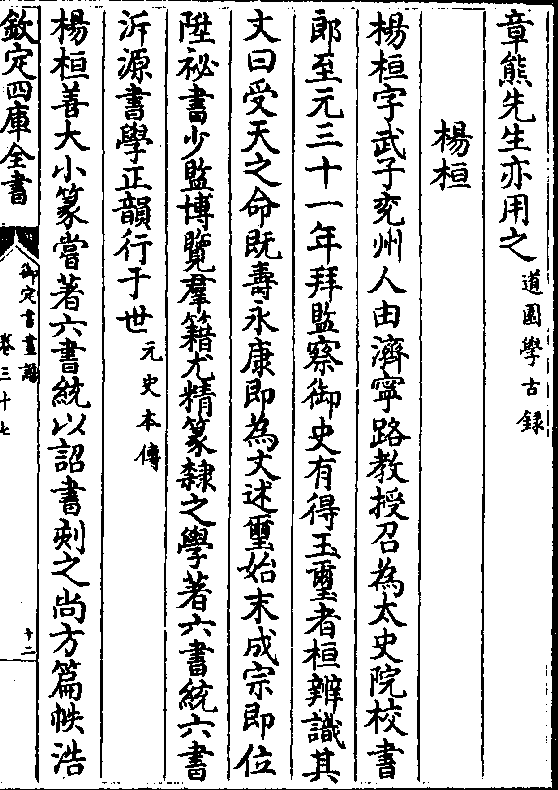 章熊先生亦用之道園學古錄
楊桓
楊桓字武子兖州人由濟寧路教授召為太史院校書
郎至元三十一年拜監察御史有得玉璽者桓辨識其
文曰受天之命既壽永康即為文述璽始末成宗即位
陞祕書少監博覽羣籍尤精篆隸之學著六書統六書
泝源書學正韻行于世元史本傳
楊桓善大小篆嘗著六書統以詔書刻之尚方篇帙浩
欽定四庫全書
御定書畫譜
卷三十七
十二